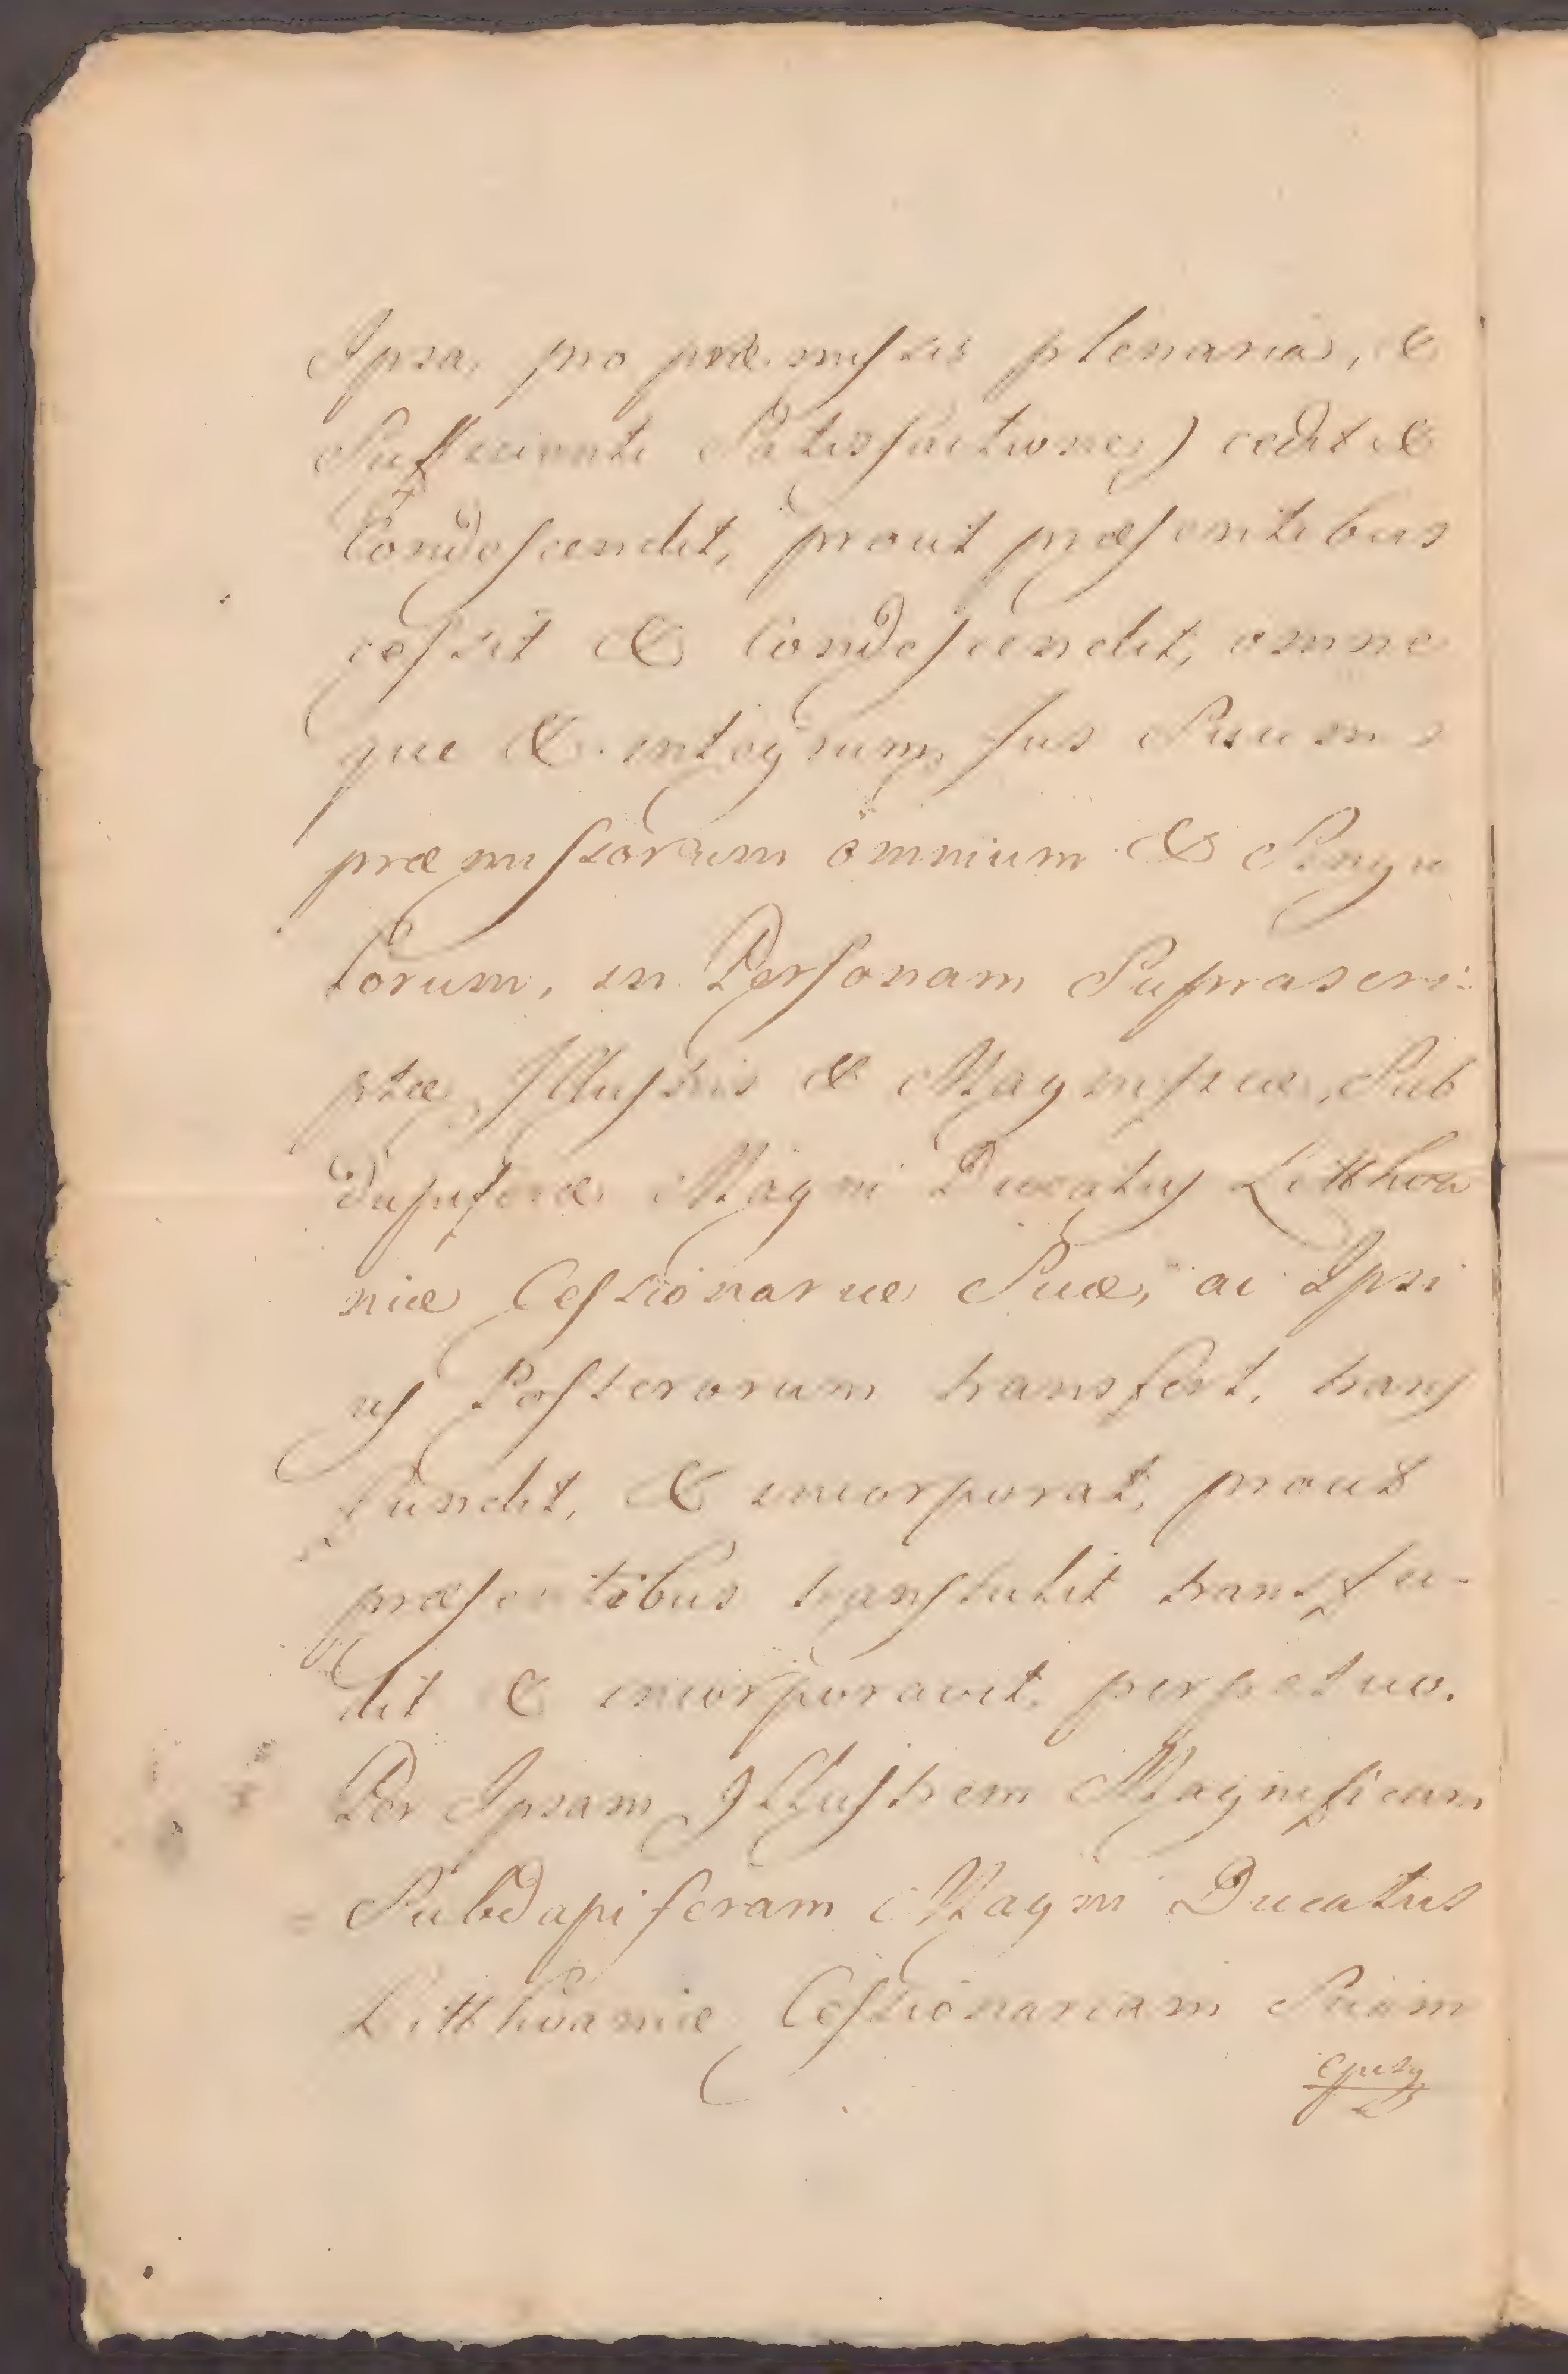 Ipsa, pro præmissis plenaria, &
Sufficienti Satisfactione) cedit &
Condescendit, prout præsentibus
cessit & Condescendit, omne
que & integrum Jus Suum
præmissorum omnium & Singu
lorum, in Personam Suprascri:
ptæ Illustris & Magnificæ Sub
dapiferæ Magni Ducatus Litthva
niæ Cessionariæ Suæ, ac Ipsi
us Posterorum transfert, trans
fundit, & incorporat, prout
præsentibus transtulit transfu-
dit & incorporavit, perpetuo.
Per Ipsam Illustrem Magnificam
Subdapiferam Magni Ducatus
Litthvaniæ Cessionariam Suam
ejusq